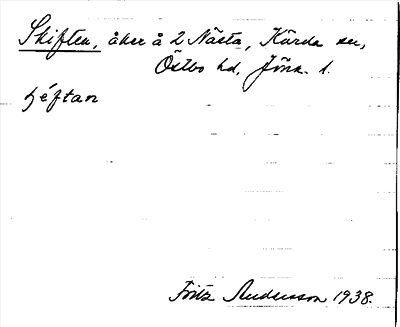 Skiften, åker å 2 Nästa, Kärda sn,
Östbo hd, Jönk. l.
ʃéftan
Fritz Andersson 1938.